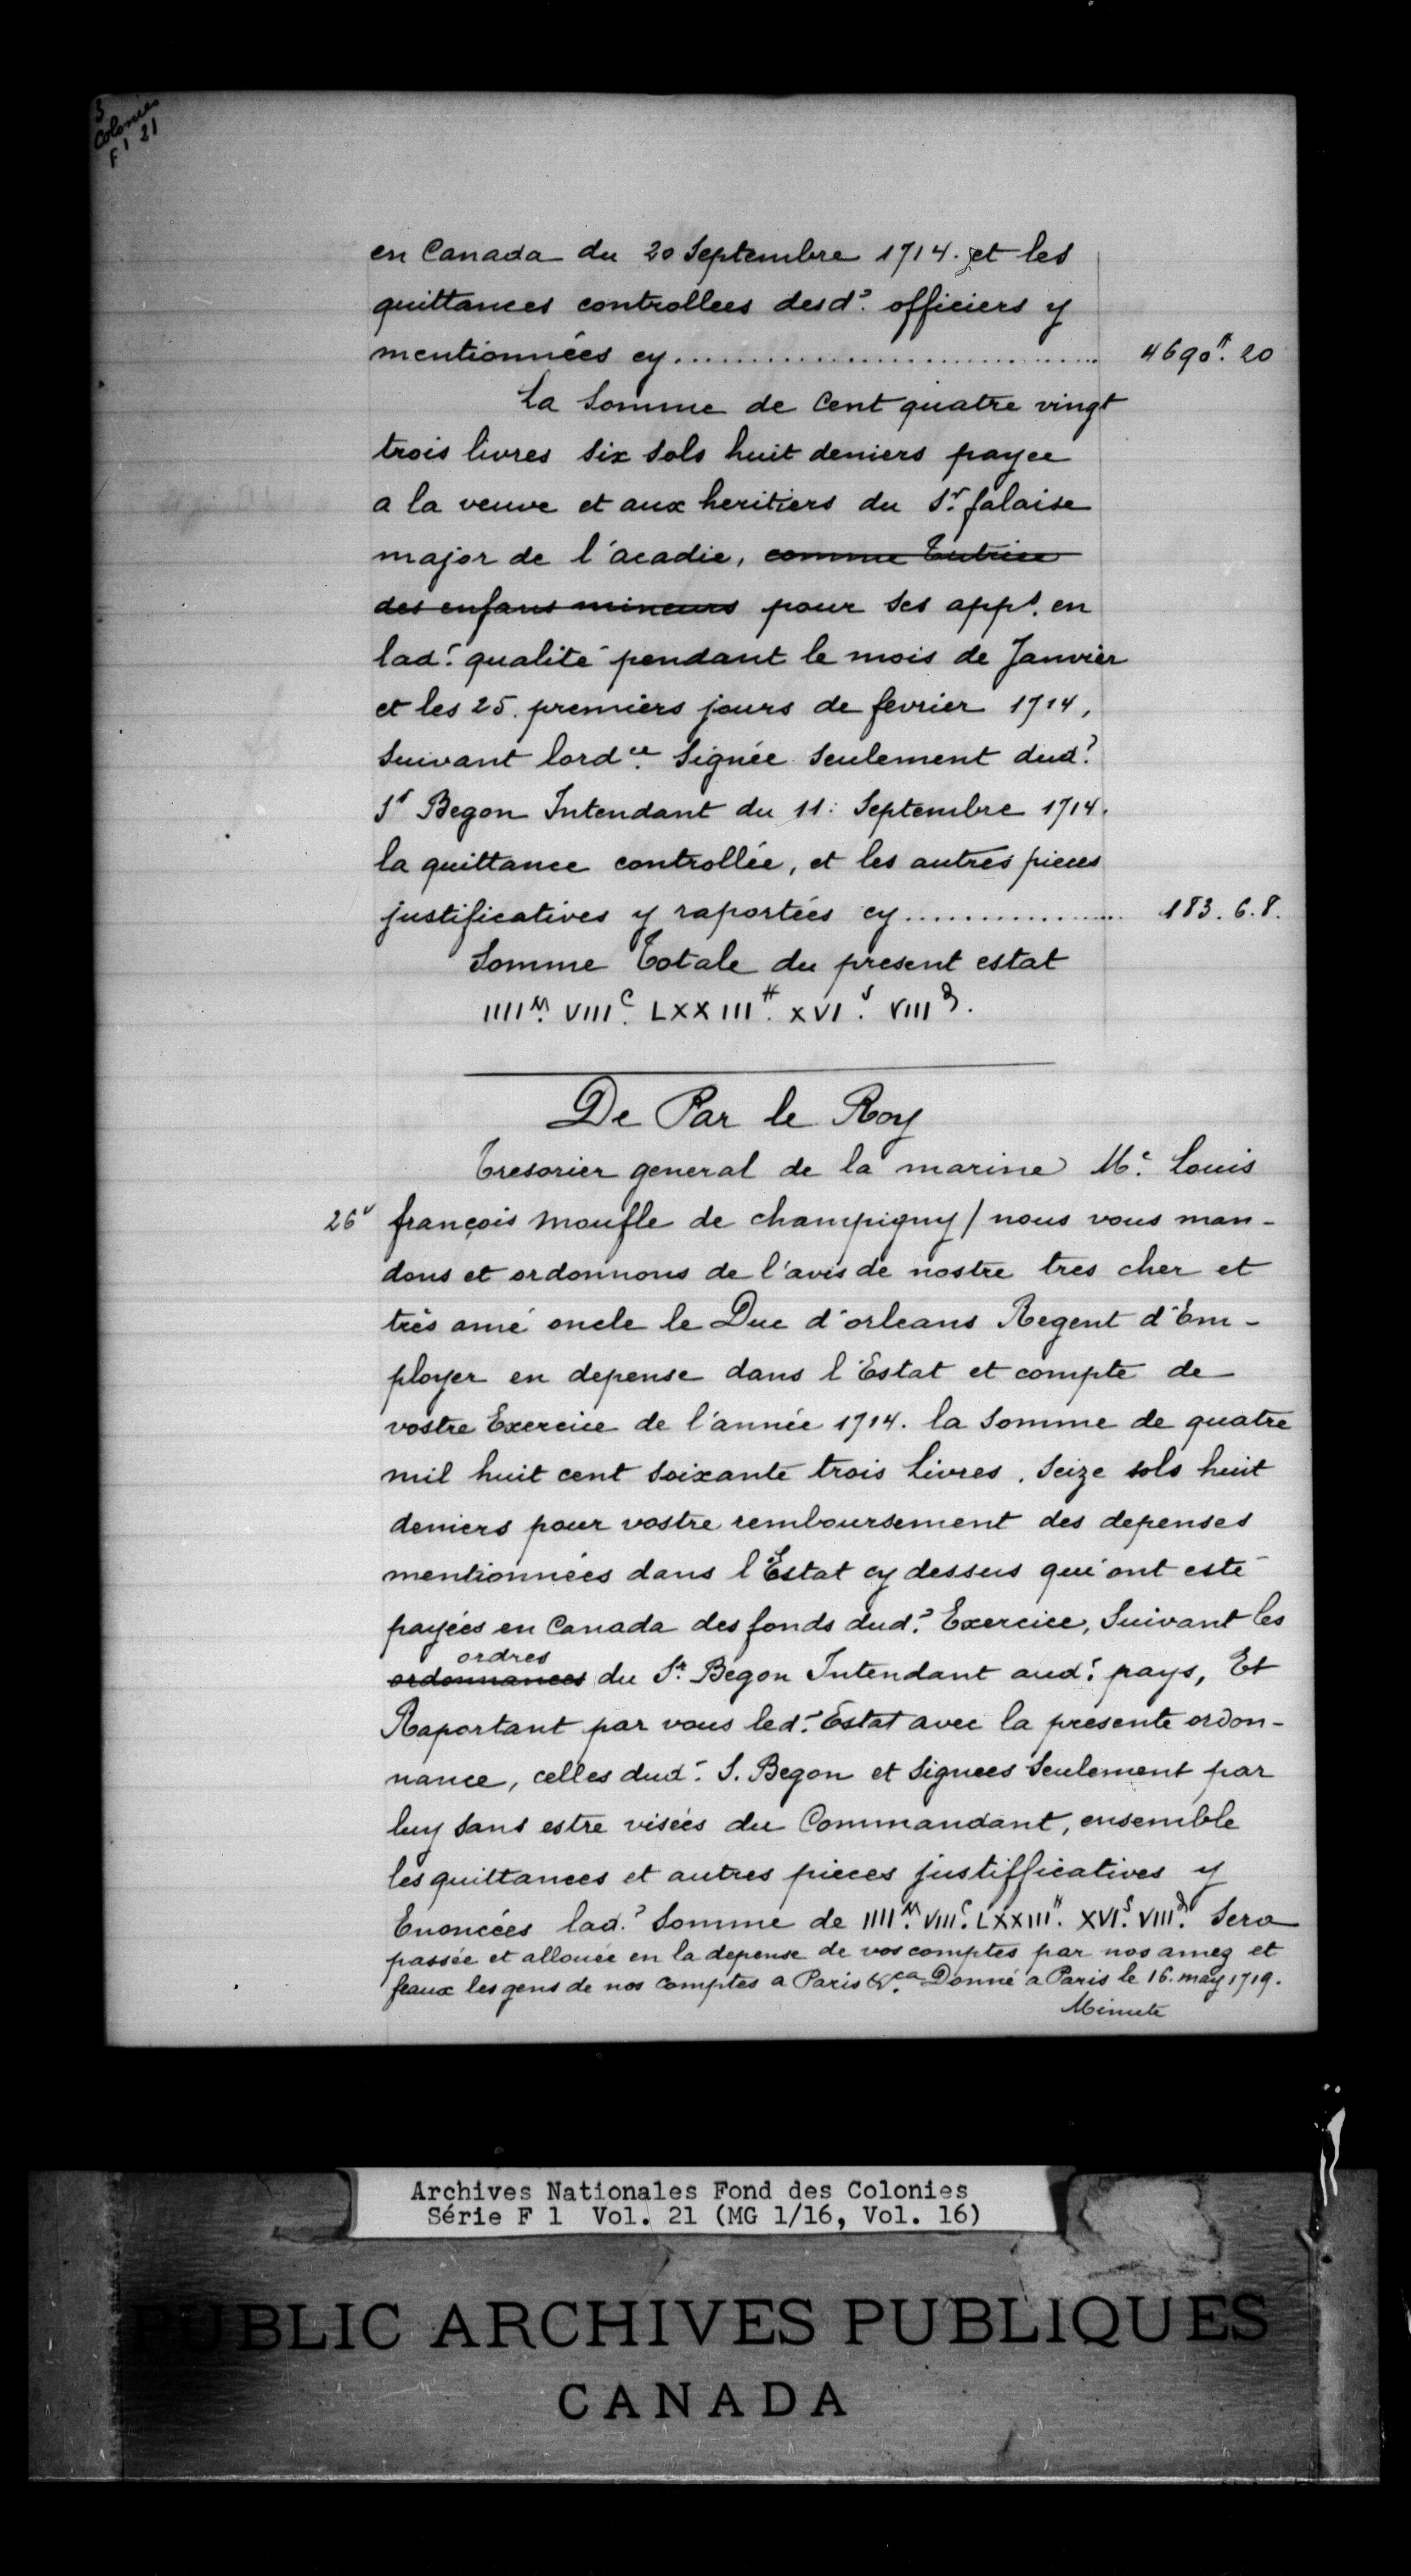 S
Colonies
F 1 21
en Canada du 20 Septembre 1714. et les
quittances controllees desd.s officiers y
mentionnées cy.............................. 4690#. 20
La Somme de Cent quatre vingt
trois livres six sols huit deniers payee
a la veuve et aux heritiers du Sr. falaise
major de l'acadie, comme Tutrice
des enfans mineurs pour ses appt. en
lad.e qualité pendant le mois de Janvier
et les 25. premiers jours de fevrier 1714,
suivant lordce. Signée Seulement dud.t
Sr Begon Intendant du 11: Septembre 1714.
la quittance controllée, et les autres pieces
justificatives y raportées cy.................. 183. 6. 8.
Somme Totale du present estat
IIII M. VIII C. LXXIII #. XVI s. VIII d.
De Par le Roy
Tresorier general de la marine Me. Louis
26v françois moufle de champigny / nous vous man-
dons et ordonnons de l'avis de nostre tres cher et
très amé oncle le Duc d'orleans Regent d'Em-
ployer en depense dans l'Estat et compte de
vostre Exercice de l'année 1714. la Somme de quatre
mil huit cent soixante trois Livres. Seize sols huit
deniers pour vostre remboursement des depenses
mentionnées dans l'Estat cy dessus qui ont esté
payées en Canada des fonds dud.t Exercice, Suivant les
ordres
ordonnances du Sr. Begon Intendant aud.t pays, Et
Raportant par vous led.t Estat avec la presente ordon-
nance, celles dud.t S. Begon et Signees Seulement par
luy sans estre visées du Commandant, ensemble
les quittances et autres pieces justifficatives y
Enoncées lad.e Somme de IIII M. VIII C. LXXIII #. XVI s. VIII d. Sera
passée et allouée en la depense de vos comptes par nos amez et
feaux les gens de nos Comptes a Paris &ca. Donné a Paris le 16. may 1719.
Minute
Archives Nationales Fond des Colonies
Série F 1 Vol. 21 (MG 1/16, Vol. 16)
PUBLIC ARCHIVES PUBLIQUES
CANADA